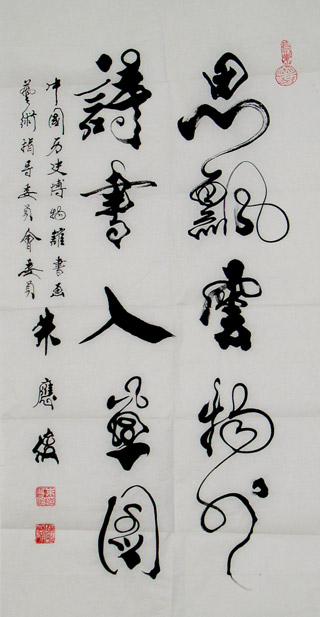 思飄雲物外
詩書入畫圖
中國历史博物館書画
藝術指导委員會委員
朱應俊